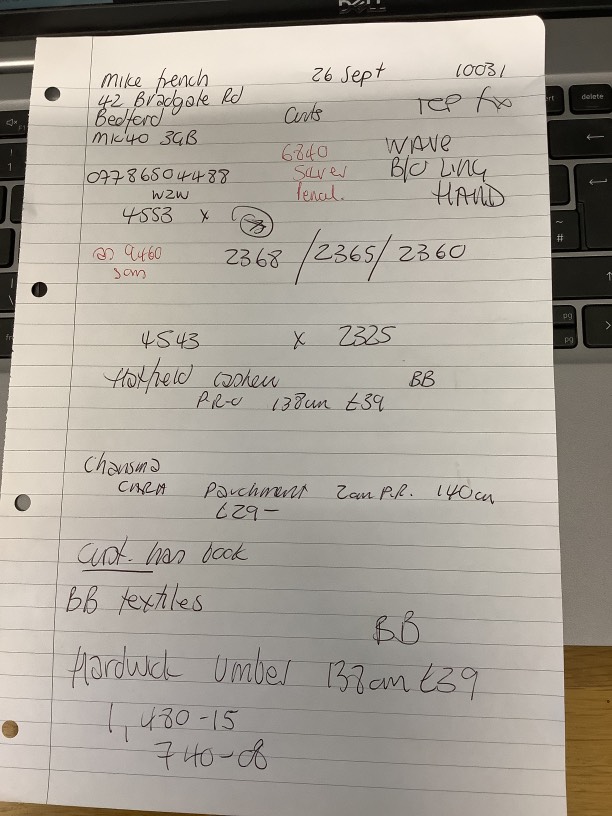 mike french 26 Sept 10031
42 Bradgate Rd TCP fix
Bedford Cuts
MK40 3GB
6840 WAVE
07786504488 Saver B/O LING
W2W HAND
4553 x
9460 2368 / 2365 / 2360
4543 x 2325
Hatfield cashew BB
P.R-0 138cm £39
Charisma
CARA Parchment 2cm P.R. 140cm
£29-
Cust. has book
BB textiles
BB
Hardwick Umber 138cm £39
1,480-15
740-08